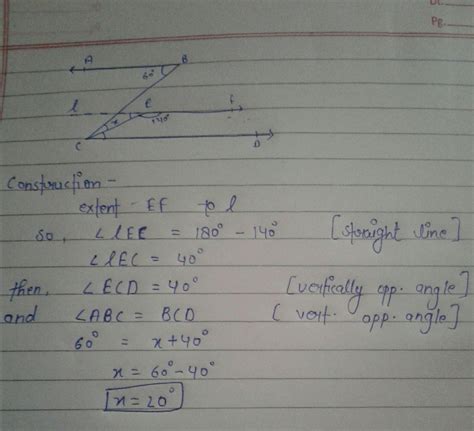 Dt.
Pg.
A B
60°
l E F
x 140°
C D
Construction -
extent - EF to l
so, ∠lEE = 180° - 140° [straight line]
∠lEC = 40°
then, ∠ECD = 40° [vertically opp. angle]
and ∠ABC = BCD [vert. opp. angle]
60° = x + 40°
x = 60° - 40°
x = 20°